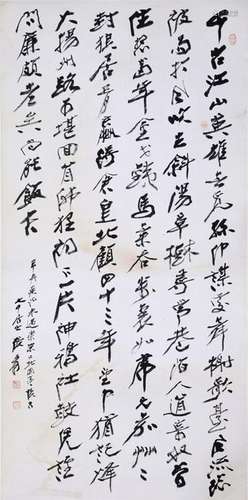 千古江山英雄無覓孫仲謀處舞榭歌臺風流總
被雨打風吹去斜陽草樹尋常巷陌人道寄奴曾
住想當年金戈鐵馬氣吞萬里如虎元嘉草々
封狼居胥贏得倉皇北顧四十三年望中猶記烽
火揚州路可堪回首佛狸祠下一片神鴉社鼓憑誰
問廉頗老矣尚能飯否
大千居士 張爰